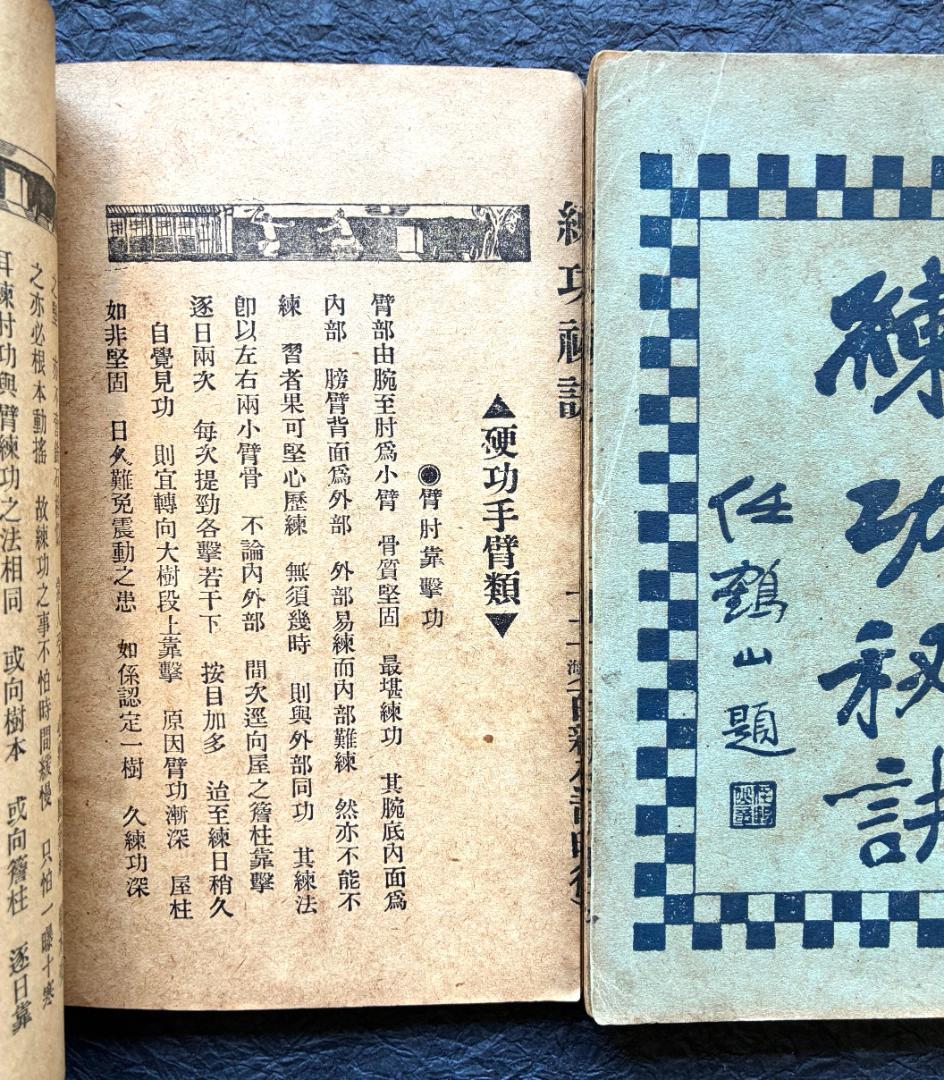 練功秘訣
任鶴山題
練功祕訣
▲硬功手臂類▼
◉臂肘靠擊功
臂部由腕至肘爲小臂　骨質堅固　最堪練功　其腕底內面爲
內部　膀臂背面爲外部　外部易練而內部難練　然亦不能不
練　習者果可堅心歷練　無須幾時　則與外部同功　其練法
卽以左右兩小臂骨　不論內外部　間次逕向屋之簷柱靠擊
逐日兩次　每次提勁各擊若干下　按日加多　迨至練日稍久
自覺見功　則宜轉向大樹段上靠擊　原因臂功漸深　屋柱
如非堅固　日久難免震動之患　如係認定一樹　久練功深
之亦必根本動搖　故練功之事不怕時間緩慢　只怕一曝十寒
耳練肘功與臂練功之法相同　或向樹本　或向簷柱　逐日靠